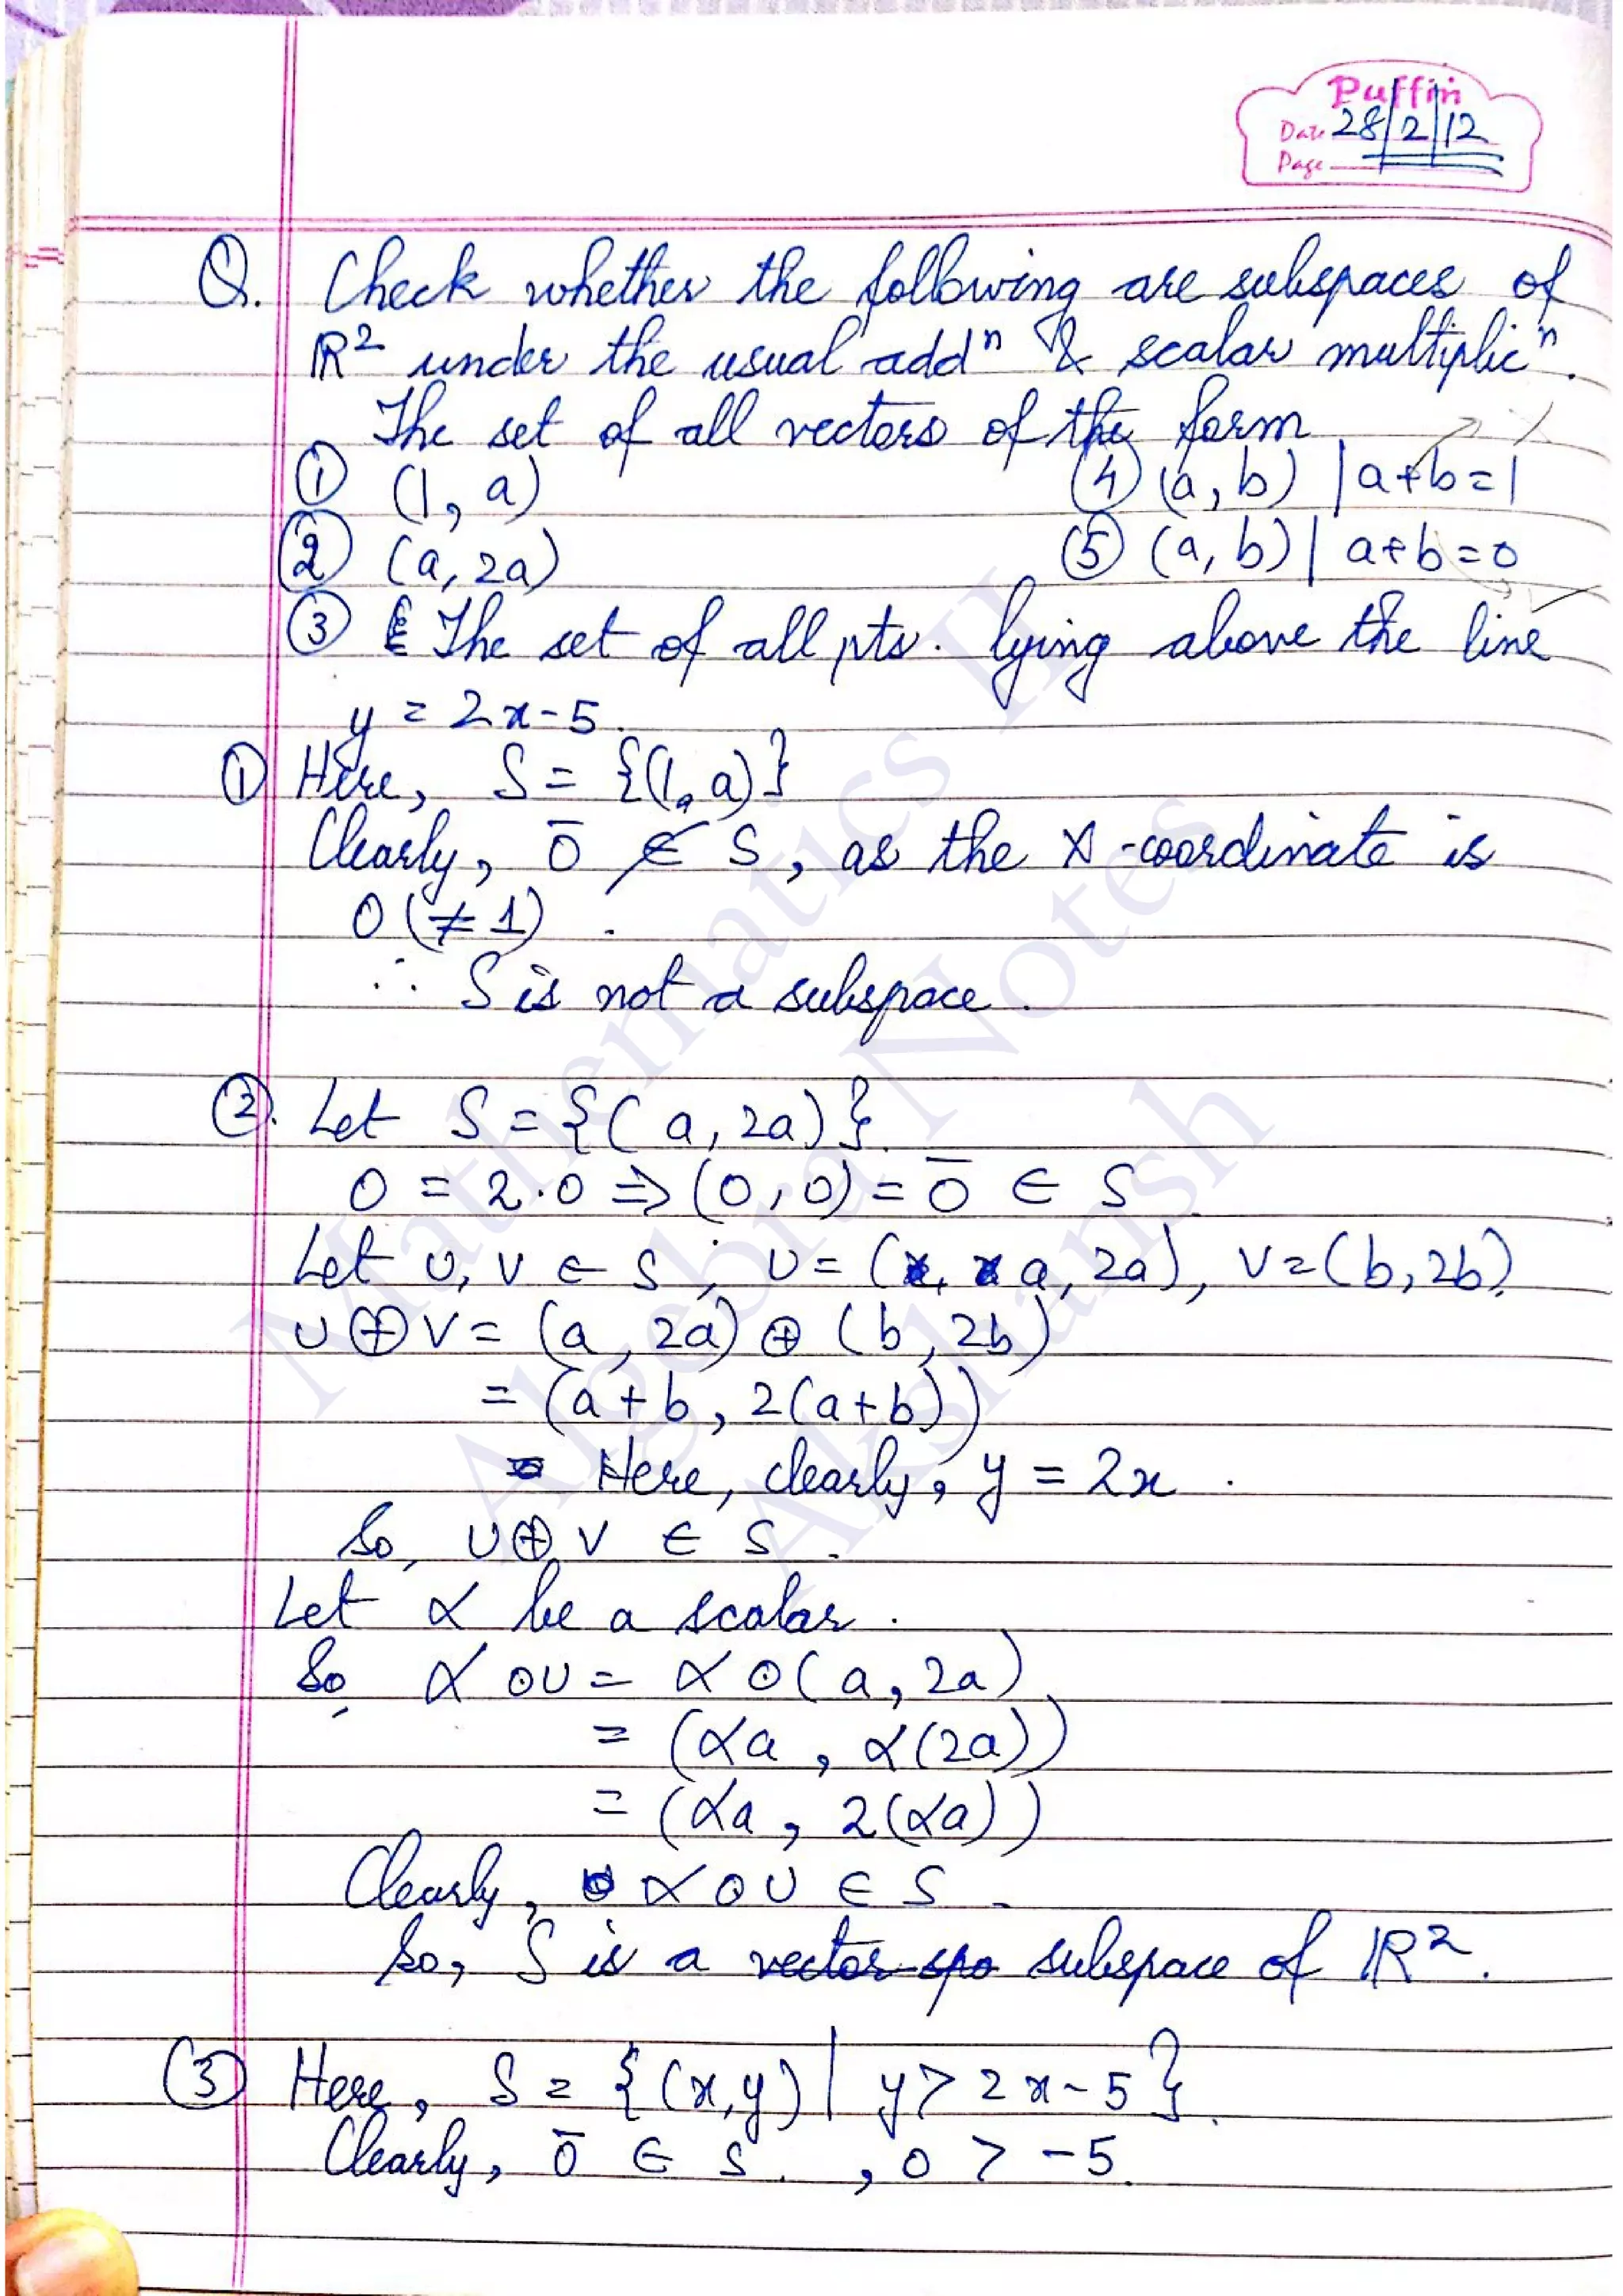 Puffin
Date 28/2/12
Page
Q. Check whether the following are subspaces of
ℝ² under the usual addⁿ & scalar multiplicⁿ.
The set of all vectors of the form
① (1, a) ④ (a, b) | a+b=1
② (a, 2a) ⑤ (a, b) | a+b=0
③ The set of all pts. lying above the line
y = 2x-5.
① Here, S = {(1, a)}
Clearly, 0̄ ∉ S, as the x-coordinate is
0 (≠ 1).
∴ S is not a subspace.
②. Let S = {(a, 2a)}.
0 = 2·0 ⇒ (0, 0) = 0̄ ∈ S.
Let u, v ∈ S; u = (a, 2a), v = (b, 2b).
u ⊕ v = (a, 2a) ⊕ (b, 2b)
= (a+b, 2(a+b))
Here, clearly, y = 2x.
So, u ⊕ v ∈ S.
Let α be a scalar.
So, α ⊙ u = α ⊙ (a, 2a)
= (αa, α(2a))
= (αa, 2(αa))
Clearly, α ⊙ u ∈ S.
So, S is a vector spa subspace of ℝ².
③ Here, S = {(x,y) | y > 2x-5}.
Clearly, 0̄ ∈ S., 0 > -5.
Mathematics II
Algebra Notes
Akshansh